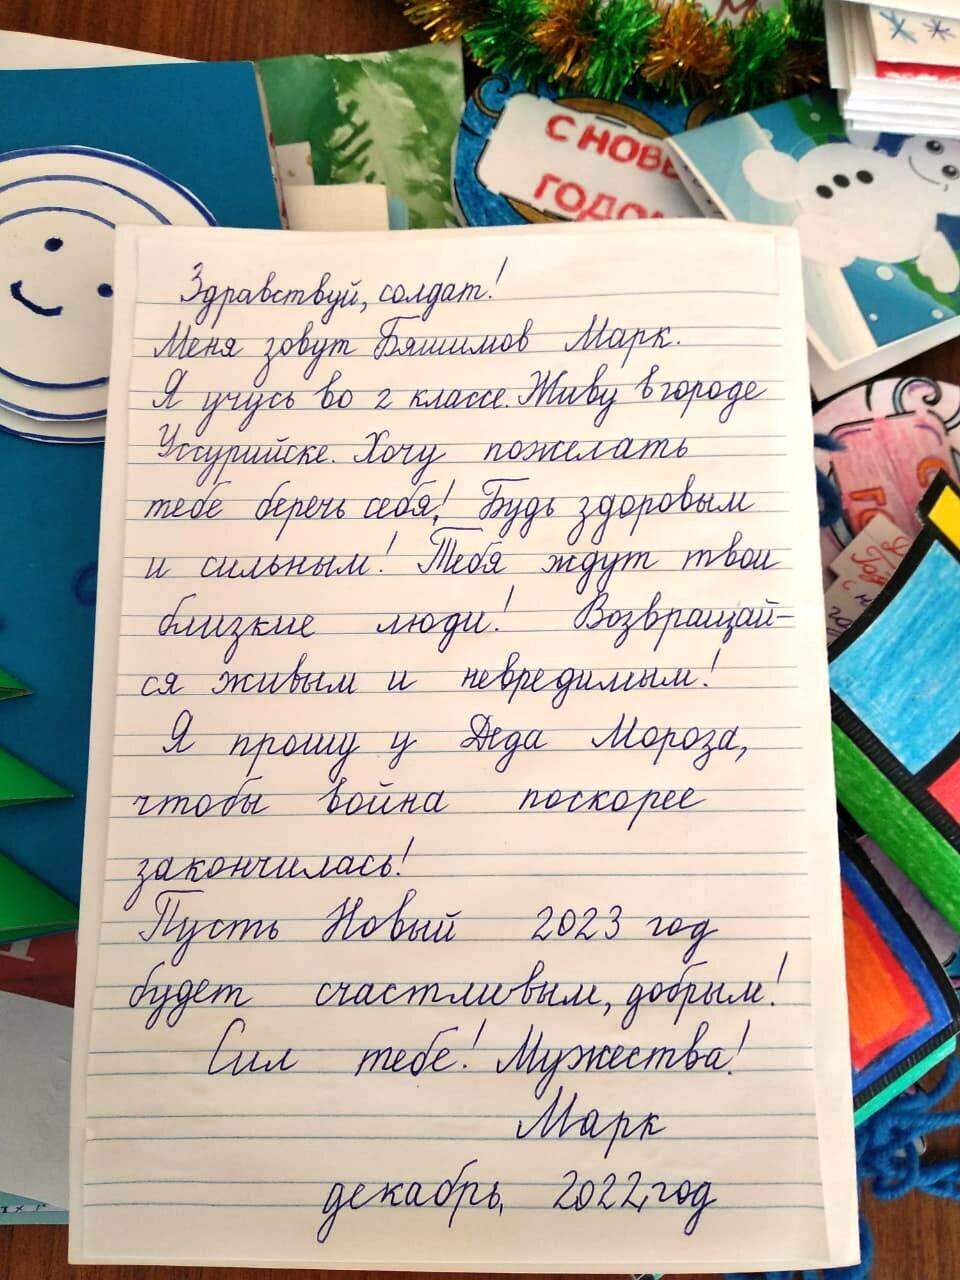 С НОВЫ
ГОДОМ
Здравствуй, солдат!
Меня зовут Бяшимов Марк.
Я учусь во 2 классе. Живу в городе
Уссурийске. Хочу пожелать
тебе беречь себя! Будь здоровым
и сильным! Тебя ждут твои
близкие люди! Возвращай-
ся живым и невредимым!
Я прошу у Деда Мороза,
чтобы война поскорее
закончилась!
Пусть Новый 2023 год
будет счастливым, добрым!
Сил тебе! Мужества!
Марк
декабрь, 2022 год